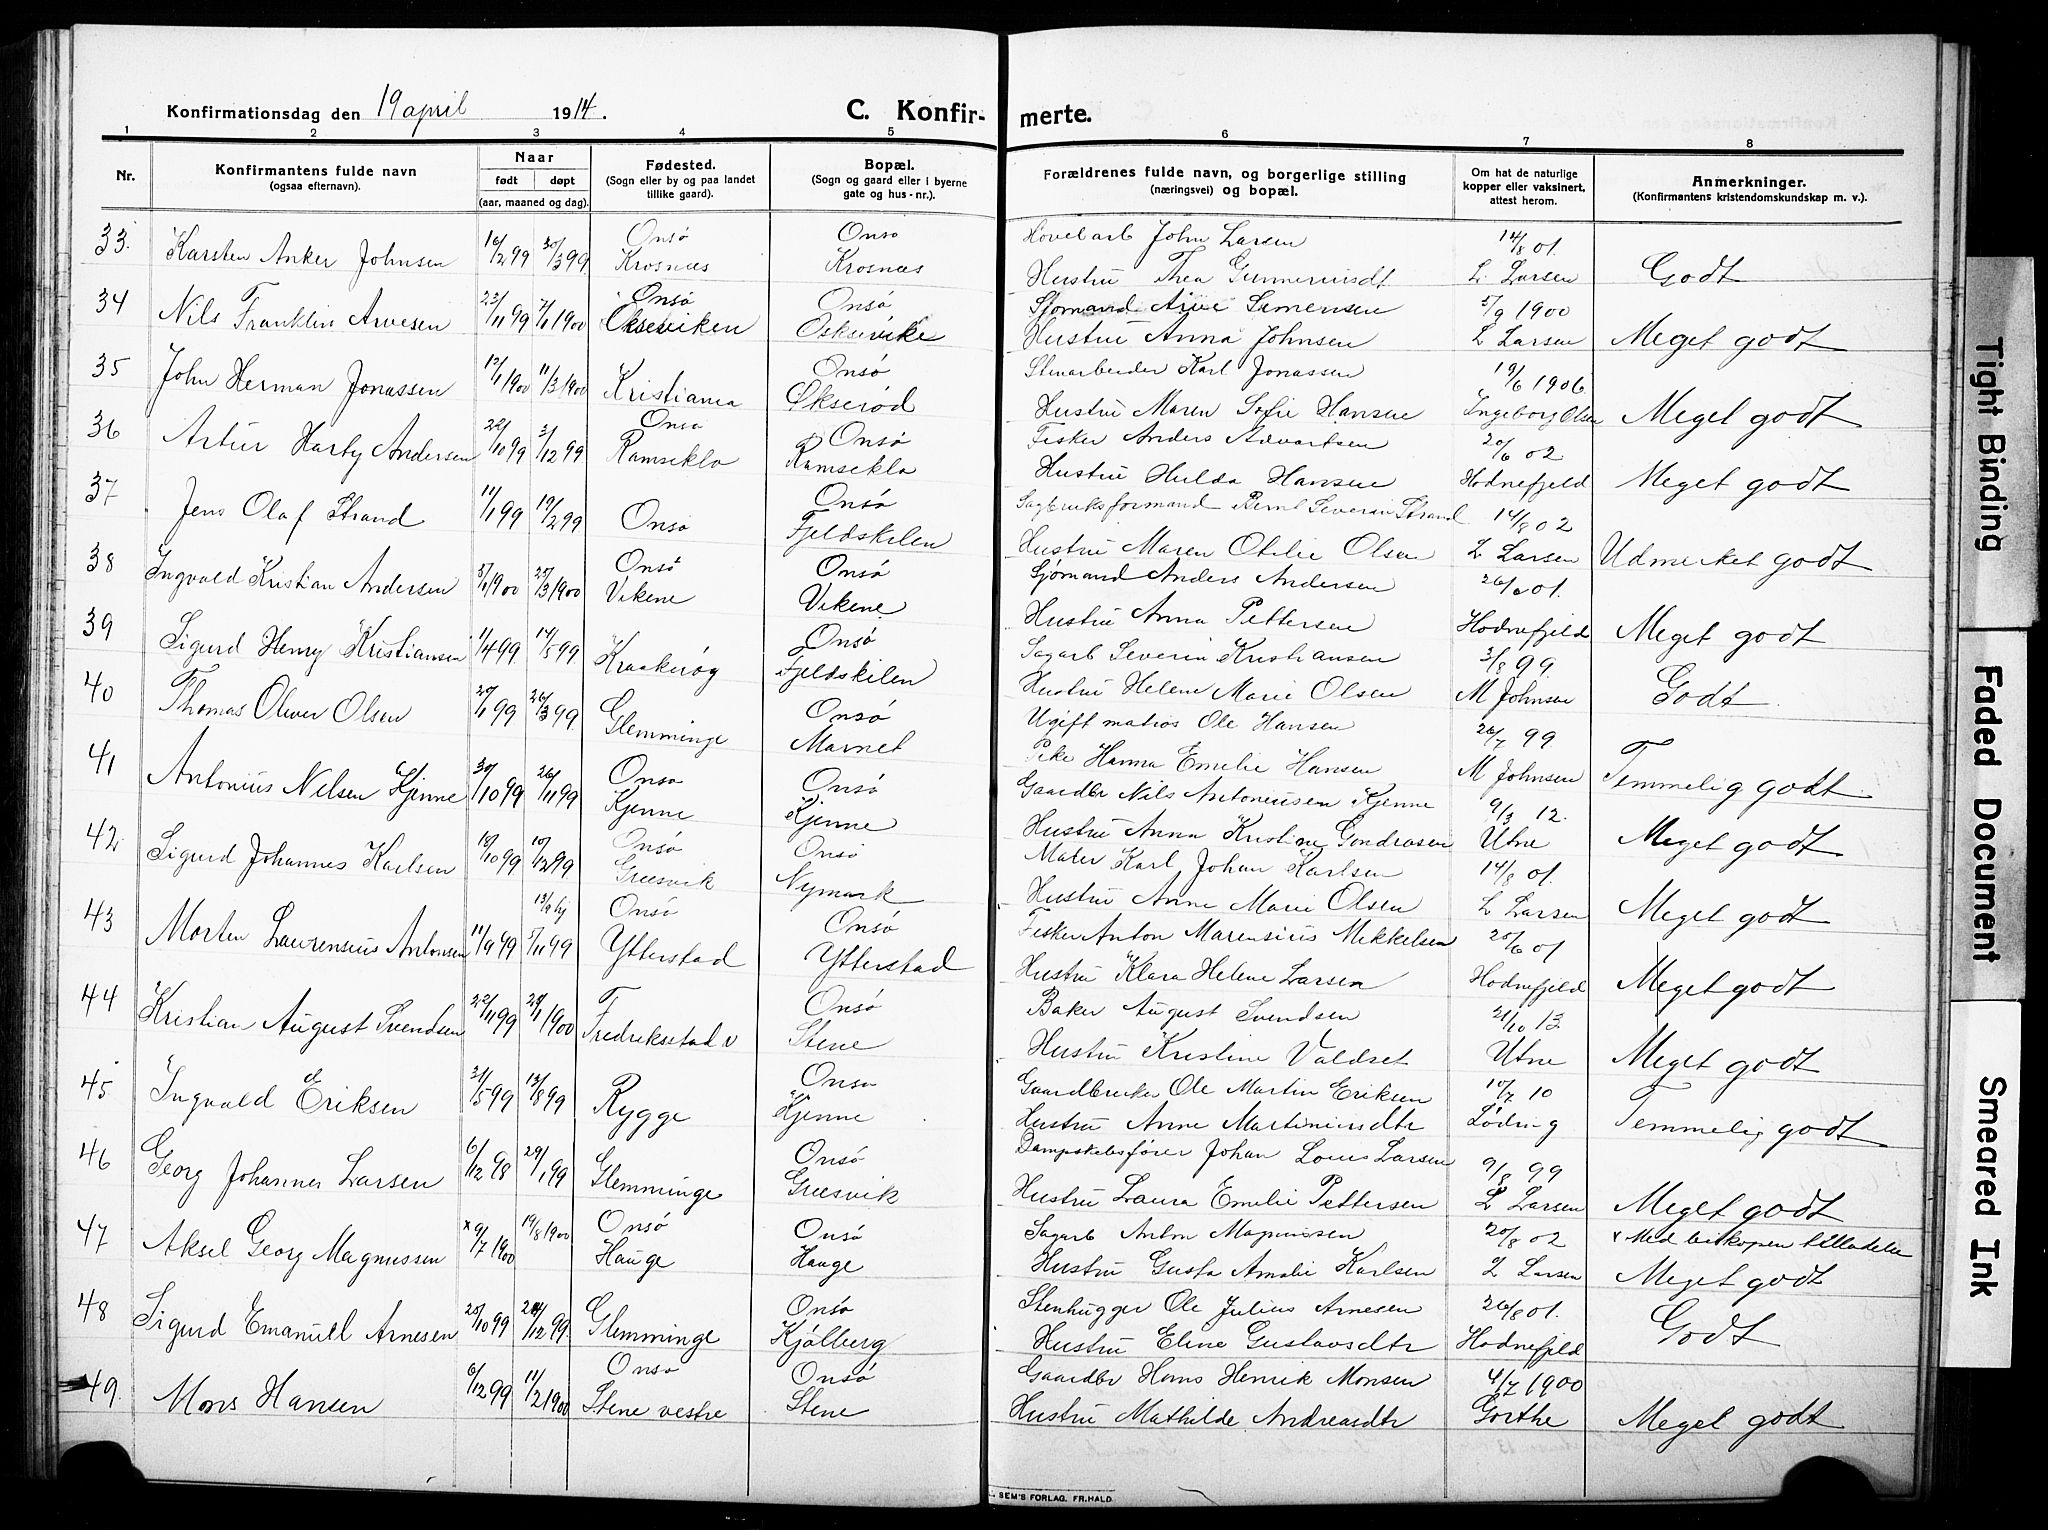 Konfirmationsdag den 19 april 1914. C. Konfir- merte.
1 2 3 4 5 6 7 8
Nr. Konfirmantens fulde navn (ogsaa efternavn). Naar født døpt (aar, maaned og dag). Fødested. (Sogn eller by og paa landet tillike gaard). Bopæl. (Sogn og gaard eller i byerne gate og hus-nr.). Forældrenes fulde navn, og borgerlige stilling (næringsvei) og bopæl. Om hat de naturlige kopper eller vaksinert, attest herom. Anmerkninger. (Konfirmantens kristendomskundskap m. v.).
33. Karsten Anker Johnsen 16/2 99 30/3 99 Onsø Krosnæs Onsø Krosnæs Hovelarb John Larsen 14/8 01.
Hustru Thea Gunneriusdt L. Larsen Godt
34 Nils Franklin Arvesen 23/11 99 7/1 1900 Onsø Økseviken Onsø Sjømand Arve Samensen 5/9 1900
Hustru Anna Johnsen L Larsen Meget godt
35 John Herman Jonassen 12/1 1900 11/3 1900 Kristiania Onsø Økserød Stenarbeider Karl Jonassen 19/6 1906
Hustru Maren Sofie Hansen Ingeborg Olsen Meget godt
36 Artur Harby Andersen 22/10 99 3/12 99 Onsø Ramseklo Onsø Ramseklo Fisker Anders Advartsen 20/6 02
Hustru Hulda Hansen Hodnefjeld Meget godt
37 Jens Olaf Strand 11/1 99 19/2 99 Onsø Onsø Fjeldskilen Sagbruksformand Bernt Severin Strand 14/8 02
Hustru Maren Otilie Olsen L Larsen Udmerket godt
38 Ingvald Kristian Andersen 5/1 1900 25/3 1900 Onsø Vikene Onsø Vikene Sjømand Anders Andersen 26/6 01.
Hustru Anna Pettersen Hodnefjeld Meget godt
39 Sigurd Henry Kristiansen 11/4 99 14/5 99 Kraakerøy Onsø Fjeldskilen Sagarb Severin Kristiansen 3/8 99.
Hustru Helene Marie Olsen M Johnsen Godt
40 Thomas Oliver Olsen 20/1 99 26/3 99 Glemminge Onsø Marnet Ugift matros Ole Hansen 26/7 99
Pike Hanna Emelie Hansen M Johnsen Temmelig godt
41 Antonius Nilsen Kjenne 30/10 99 26/11 99 Onsø Kjenne Onsø Kjenne Gaardbr Nils Antoniusen Kjenne 9/3 12.
Hustru Anna Kristine Gondrosen Utne Meget godt
42. Sigurd Johannes Karlsen 18/10 99 10/12 99 Onsø Gresvik Onsø Nymark Maler Karl Johan Karlsen 14/8 01.
Hustru Anne Marie Olsen L Larsen Meget godt
43 Morten Laurensius Antonsen 11/9 99 13/9 hj 5/11 99 Onsø Ytterstad Onsø Ytterstad Fisker Anton Marensius Mikkelsen 20/6 01
Hustru Klara Helene Larsen Hodnefjeld Meget godt
44 Kristian August Svendsen 22/11 99 28/1 1900 Fredrikstad v Onsø Stene Baker August Svendsen 21/10 13
Hustru Kristine Valdset Utne Meget godt
45 Ingvald Eriksen 31/5 99 13/8 99 Rygge Onsø Kjenne Gaardbruker Ole Martin Eriksen 10/7 10
Hustru Anne Martiniusdtr Lødrug Temmelig godt
46 Georg Johannes Larsen 6/12 98 29/1 99 Glemminge Onsø Gresvik Dampskibsfører Johan Louis Larsen 9/8 99
Hustru Laura Emelie Pettersen L Larsen Meget godt
47 Aksel Georg Magnussen x 9/7 1900 19/8 1900 Onsø Hauge Onsø Hauge Sagarb Anton Magnussen 20/8 02 x Med biskopens tilladelse
Hustru Gusta Amalie Karlsen L Larsen Meget godt
48 Sigurd Emanuel Arnesen 25/10 99 24/12 99. Glemminge Onsø Kjølberg Stenhugger Ole Julius Arnesen 26/8 01.
Hustru Eline Gustavsdtr Hodnefjeld Godt
49. Mons Hansen 6/12 99 11/2 1900 Onsø Stene vestre Onsø Stene Gaardbr Hans Henrik Monsen 4/7 1900
Hustru Mathilde Andreasdtr Gorthe Meget godt
SEM'S FORLAG, FR.HALD
Tight Binding
Faded Document
Smeared Ink